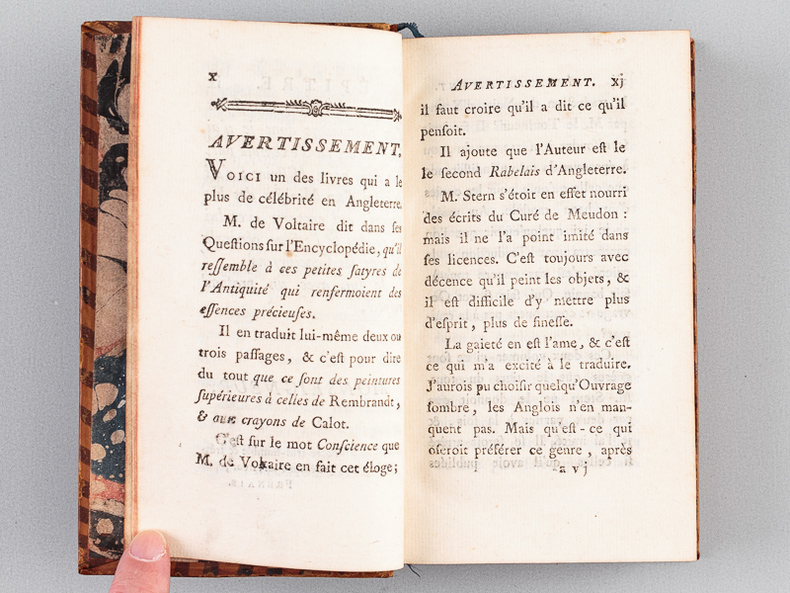 x
AVERTISSEMENT.
Voici un des livres qui a le
plus de célébrité en Angleterre.
M. de Voltaire dit dans ſes
Queſtions ſur l'Encyclopédie, qu'il
reſſemble à ces petites ſatyres de
l'Antiquité qui renfermoient des
eſſences précieuſes.
Il en traduit lui-même deux ou
trois paſſages, & c'eſt pour dire
du tout que ce ſont des peintures
ſupérieures à celles de Rembrandt,
& aux crayons de Calot.
C'eſt ſur le mot Conſcience que
M. de Voltaire en fait cet éloge;
AVERTISSEMENT. xj
il faut croire qu'il a dit ce qu'il
penſoit.
Il ajoute que l'Auteur eſt le
le ſecond Rabelais d'Angleterre.
M. Stern s'étoit en effet nourri
des écrits du Curé de Meudon :
mais il ne l'a point imité dans
ſes licences. C'eſt toujours avec
décence qu'il peint les objets, &
il eſt difficile d'y mettre plus
d'eſprit, plus de fineſſe.
La gaieté en eſt l'ame, & c'eſt
ce qui m'a excité à le traduire.
J'aurois pu choiſir quelqu'Ouvrage
ſombre, les Anglois n'en man-
quent pas. Mais qu'eſt-ce qui
oſeroit préférer ce genre, après
a vj